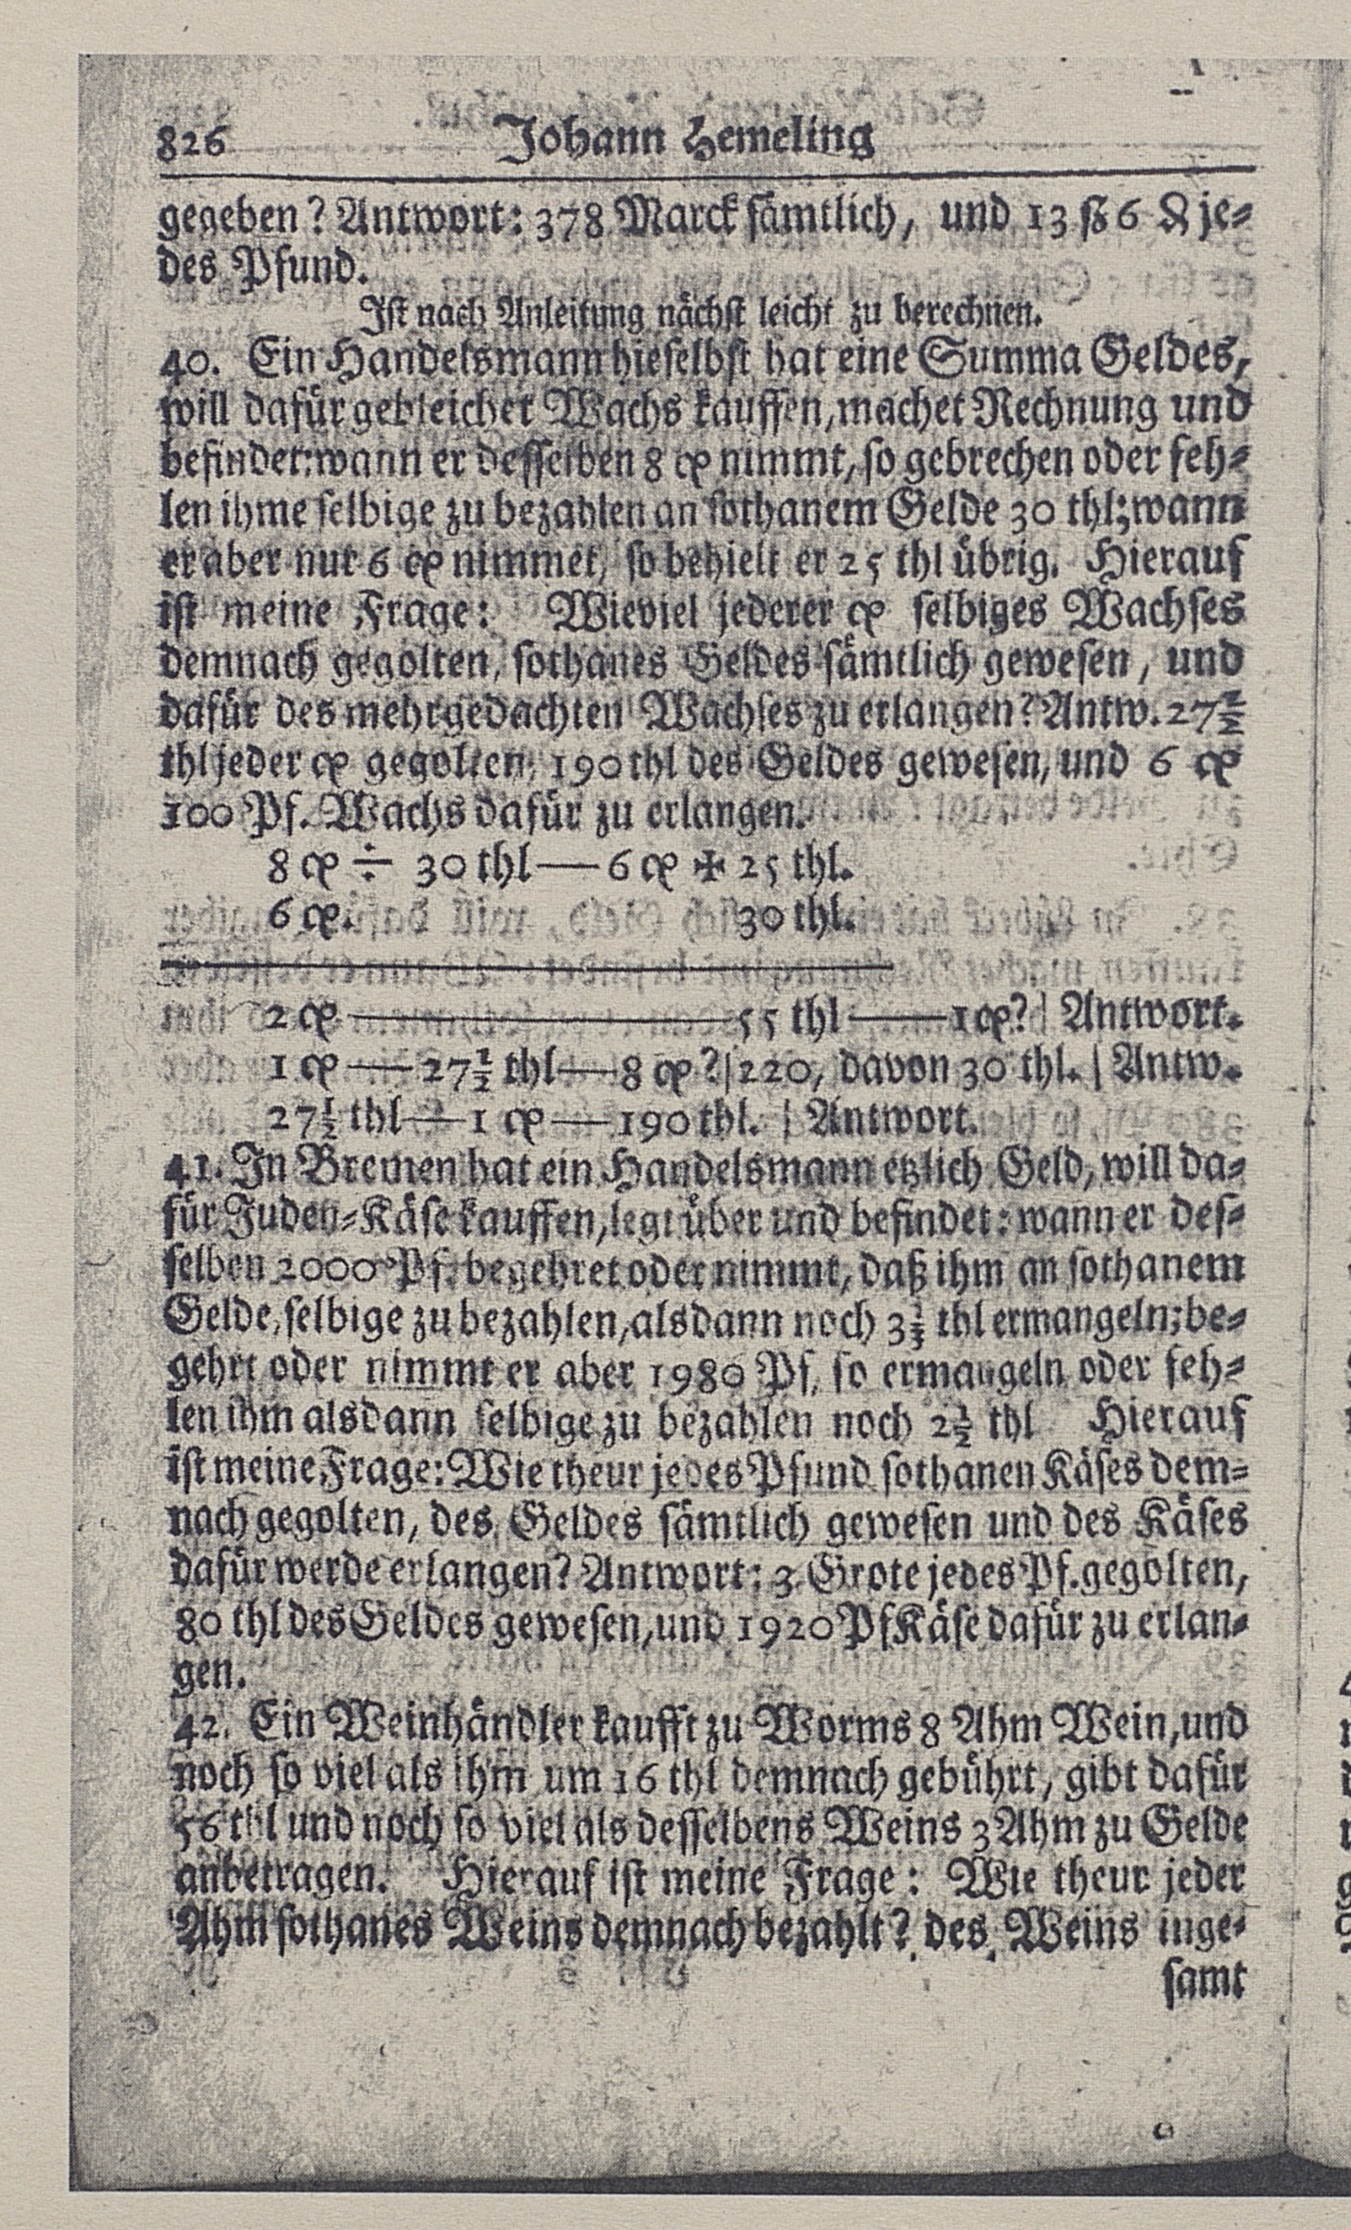 826 Johann Hemeling
gegeben? Antwort: 378 Marck sämtlich, und 13 ß 6 ₰ je-
des Pfund.
Ist nach Anleitung nächst leicht zu berechnen.
40. Ein Handelsmann hieselbst hat eine Summa Geldes,
will dafür gebleichet Wachs kauffen, machet Rechnung und
befindet: wann er desselben 8 cp nimmt, so gebrechen oder feh-
len ihme selbige zu bezahlen an sothanem Gelde 30 thl; wann
er aber nur 6 cp nimmet, so behielt er 25 thl übrig. Hierauf
ist meine Frage: Wieviel jederer cp selbiges Wachses
demnach gegolten, sothanes Geldes sämtlich gewesen, und
dafür des mehrgedachten Wachses zu erlangen? Antw. 27½
thl jeder cp gegolten, 190 thl des Geldes gewesen, und 6 cp
100 Pf. Wachs dafür zu erlangen.
8 cp ÷ 30 thl — 6 cp ✠ 25 thl.
6 cp. 30 thl.
2 cp — 55 thl — 1 cp? | Antwort.
1 cp — 27½ thl — 8 cp? | 220, davon 30 thl. | Antw.
27½ thl — 1 cp — 190 thl. | Antwort.
41. In Bremen hat ein Handelsmann etzlich Geld, will da-
für Juden-Käse kauffen, legt über und befindet: wann er des-
selben 2000 Pf. begehret oder nimmt, daß ihm an sothanem
Gelde, selbige zu bezahlen, alsdann noch 3⅓ thl ermangeln; be-
gehrt oder nimmt er aber 1980 Pf, so ermangeln oder feh-
len ihm alsdann selbige zu bezahlen noch 2½ thl Hierauf
ist meine Frage: Wie theur jedes Pfund sothanen Käses dem-
nach gegolten, des Geldes sämtlich gewesen und des Käses
dafür werde erlangen? Antwort: 3 Grote jedes Pf. gegolten,
80 thl des Geldes gewesen, und 1920 Pf Käse dafür zu erlan-
gen.
42. Ein Weinhändler kaufft zu Worms 8 Ahm Wein, und
noch so viel als ihm um 16 thl demnach gebührt, gibt dafür
56 thl und noch so viel als desselbens Weins 3 Ahm zu Gelde
anbetragen. Hierauf ist meine Frage: Wie theur jeder
Ahm sothanes Weins demnach bezahlt? des Weins inge-
samt